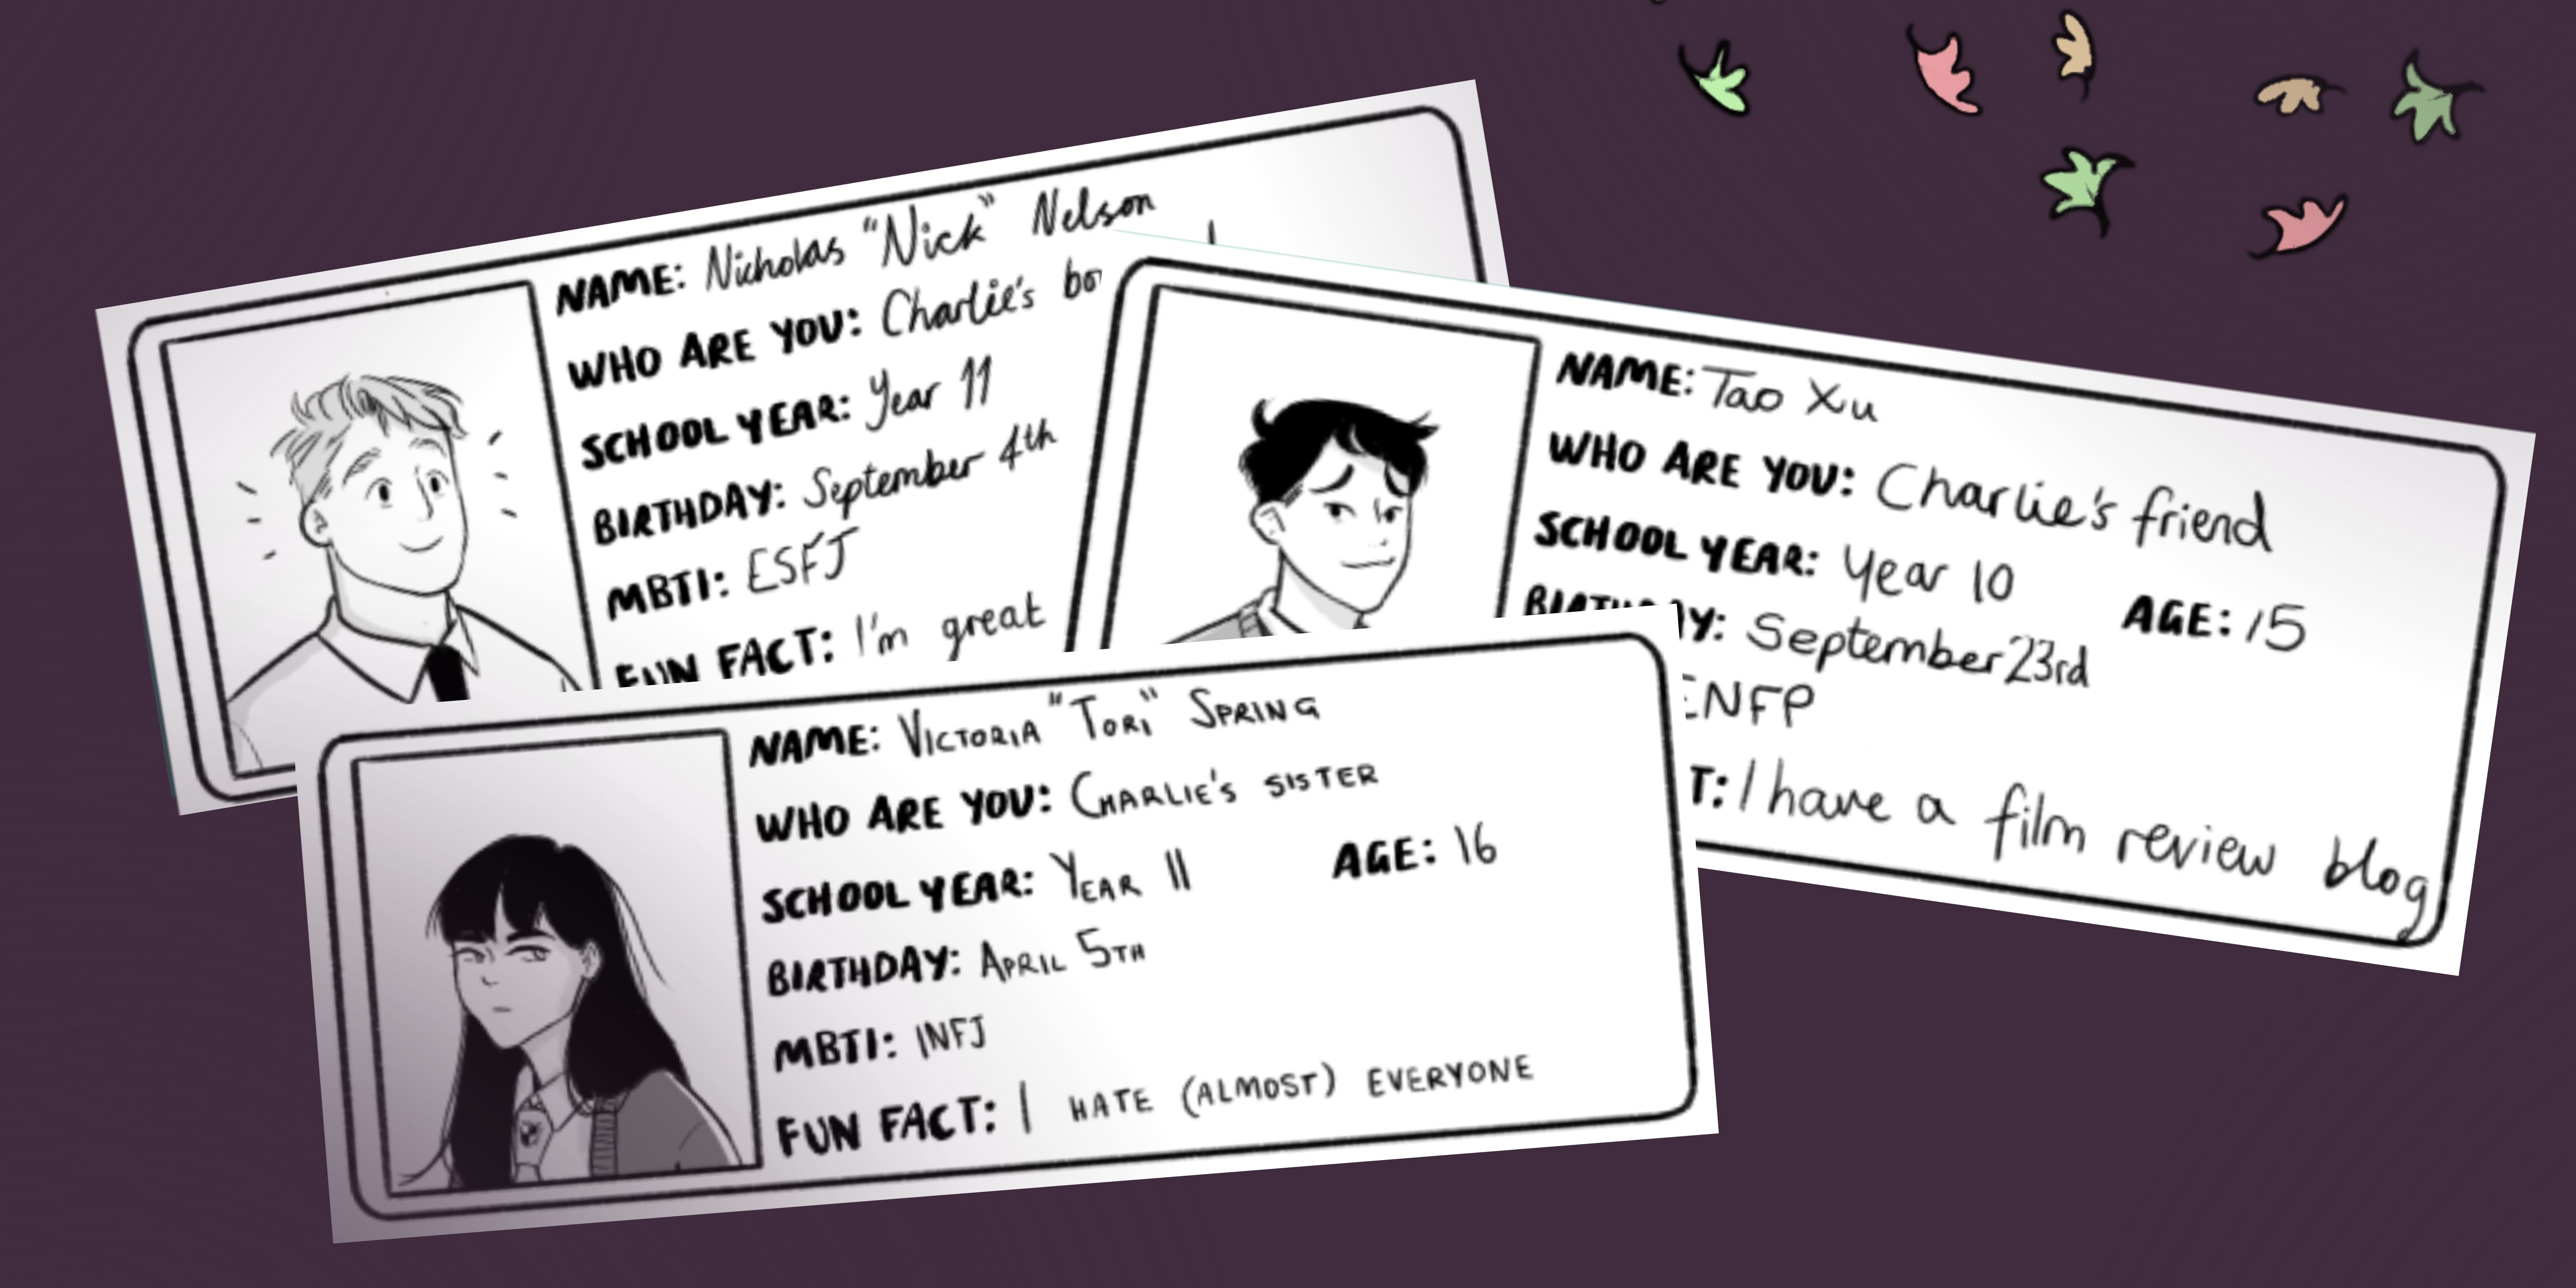 NAME: Nicholas "Nick" Nelson
WHO ARE YOU: Charlie's
SCHOOL YEAR: Year 11
BIRTHDAY: September 4th
MBTI: ESFJ
FUN FACT: I'm great
NAME: Tao Xu
WHO ARE YOU: Charlie's friend
SCHOOL YEAR: Year 10 AGE: 15
September 23rd
ENFP
I have a film review blog
NAME: VICTORIA "TORI" SPRING
WHO ARE YOU: CHARLIE'S SISTER
SCHOOL YEAR: YEAR 11 AGE: 16
BIRTHDAY: APRIL 5TH
MBTI: INFJ
FUN FACT: I HATE (ALMOST) EVERYONE